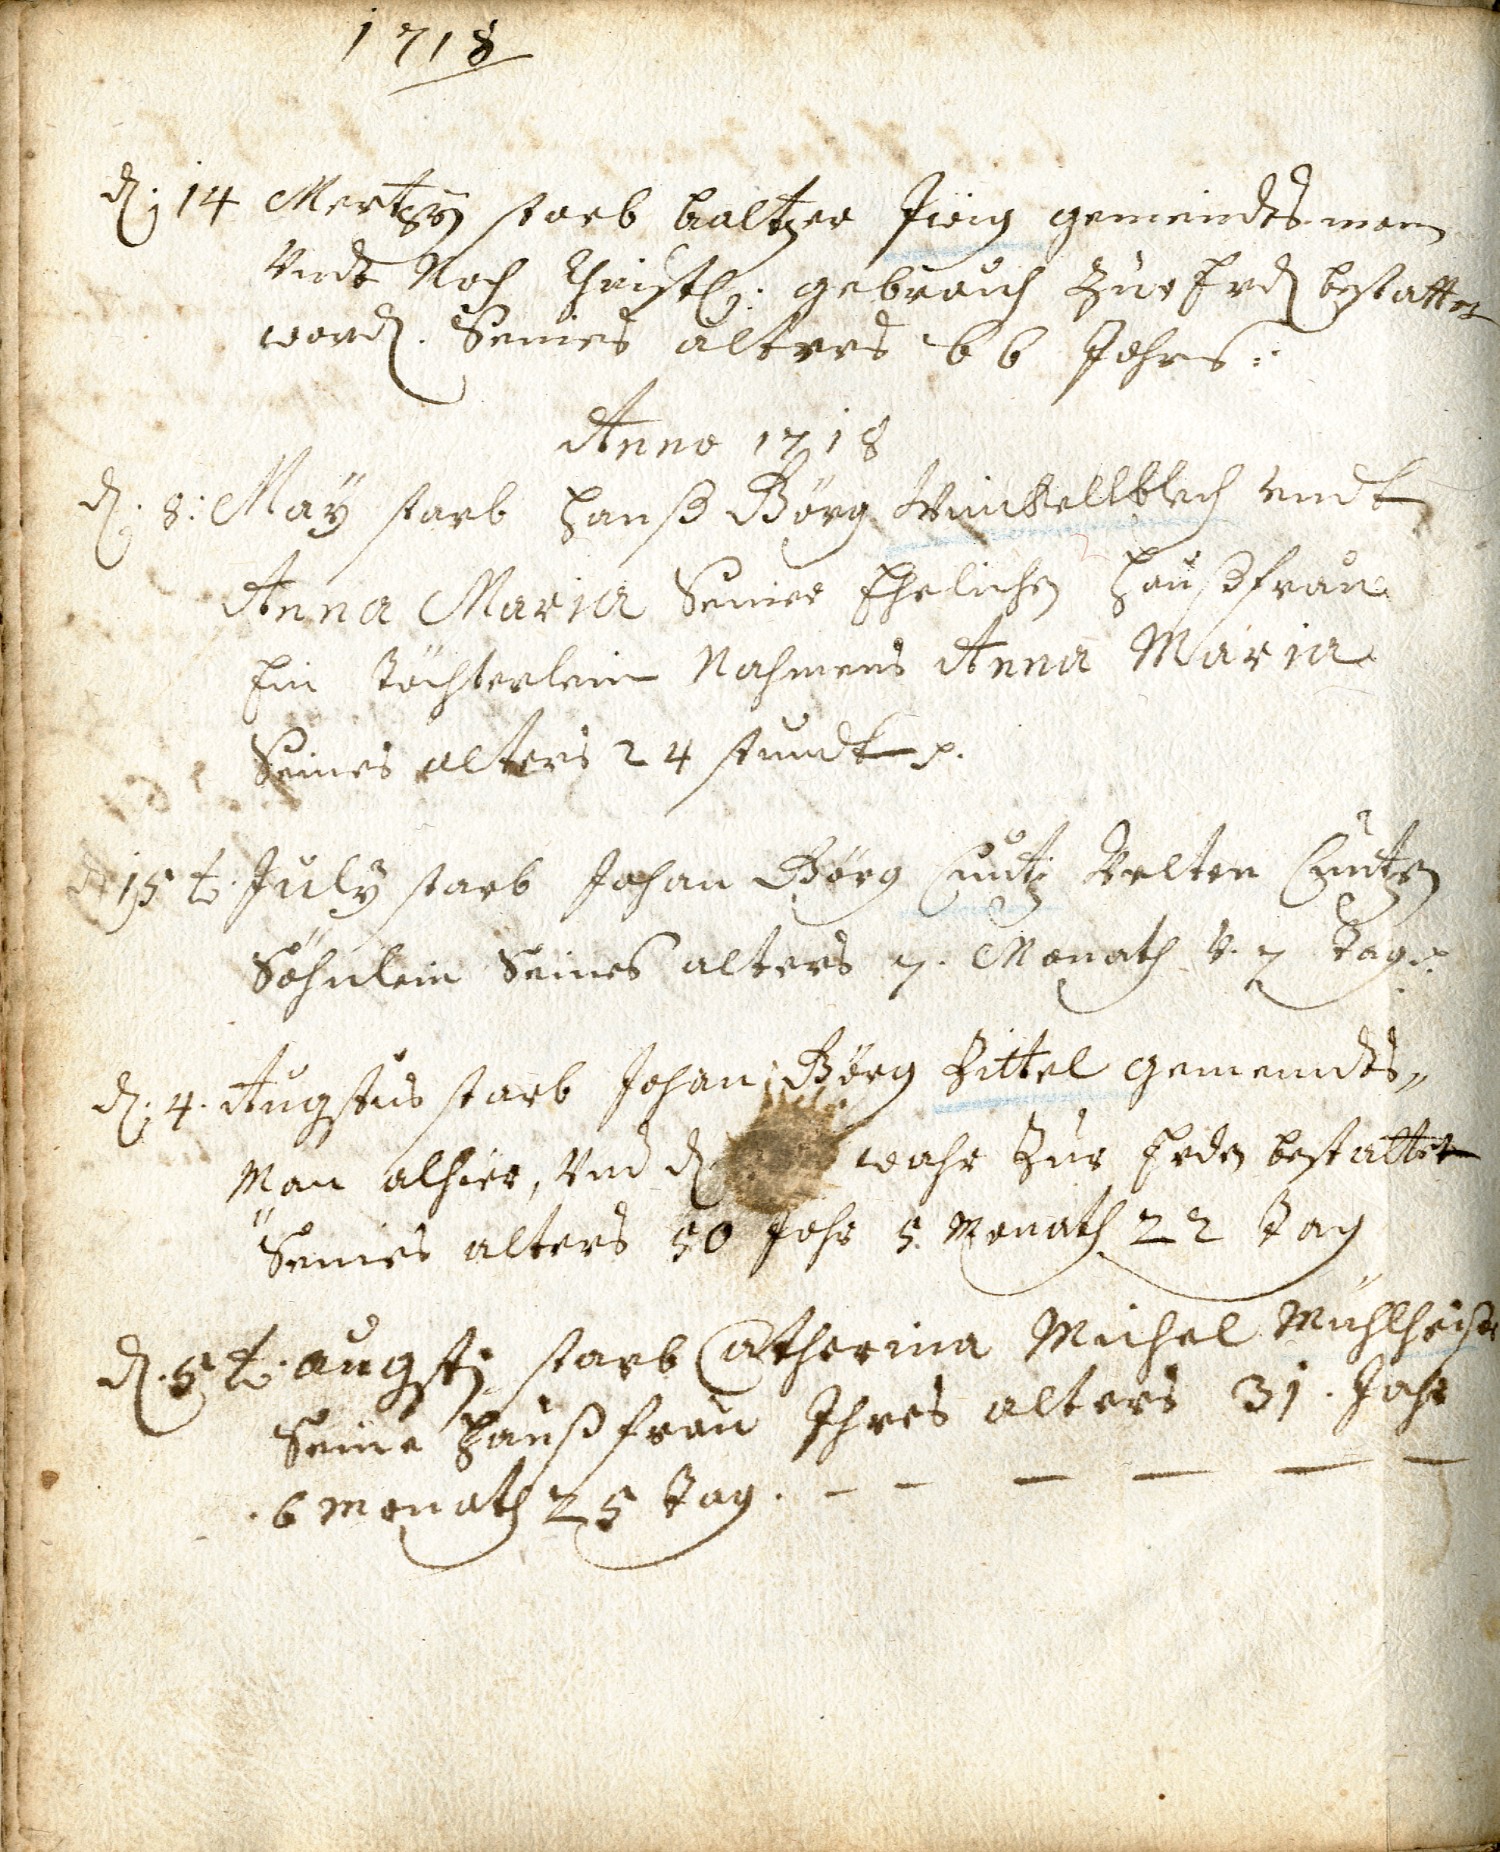 1718
d. 14 Mertzen starb baltzer gemeindts man
Undt Nach Christl: gebrauch Zur Erd bestattet
word. Seines alters 66 Jahrs:
Anno 1718
d. 8: May starb Hanß Görg Winckellblech undt
Anna Maria Seiner Ehelichen haußfrau
Ein Töchterlein Nahmens Anna Maria
Seines alters 24 stundt p.
d 15 t. July starb Johan Görg Cuntz Velten Cuntzen
Söhnlein Seines alters 7. Monath v. 7 tag p.
d. 4. Augstus starb Johan Görg Zittel gemeindts„
Man alhier, Und d wahr Zur Erden bestattet
Seines alters 50 Jahr 5. Monath 22 Tag
d. 5 t. augsti starb Catherina Michel
Seine haußfrau Ihres alters 31. Jahr
6 Monath 25 Tag. – – – – – –